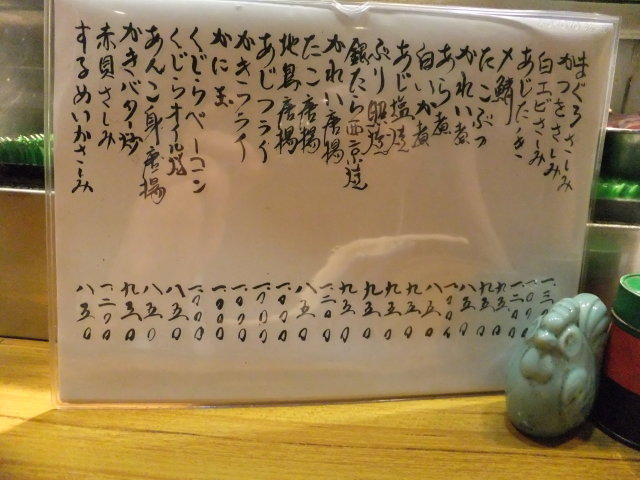 まぐろさしみ 一三〇〇
かつをさしみ 一〇〇〇
白エビさしみ 一二〇〇
あじたゝき 九五〇
〆鯖 九五〇
たこぶつ 八五〇
かれい煮 一〇〇〇
あら煮 八五〇
白いか煮 九五〇
あじ塩焼 九五〇
ぶり照焼 九五〇
銀たら西京焼 九五〇
かれい唐揚 一二〇〇
たこ唐揚 八五〇
地鳥唐揚 一〇〇〇
あじフライ 一〇〇〇
かきフライ 一〇〇〇
かに玉 一〇〇〇
くじらベーコン 一〇〇〇
くじらオイル焼 八五〇
あんこ身唐揚 八五〇
かきバタ炒 九五〇
赤貝さしみ 一二〇〇
するめいかさしみ 八五〇